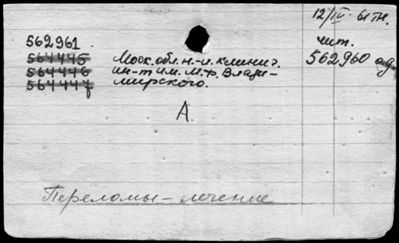 12/IV-61 тн.
чит.
562960 ад.
562961.
564445
564446
564447
Моск. обл. н.-и. клинич.
ин-т им. М.Ф. Влади-
мирского.
А.
Переломы – лечение